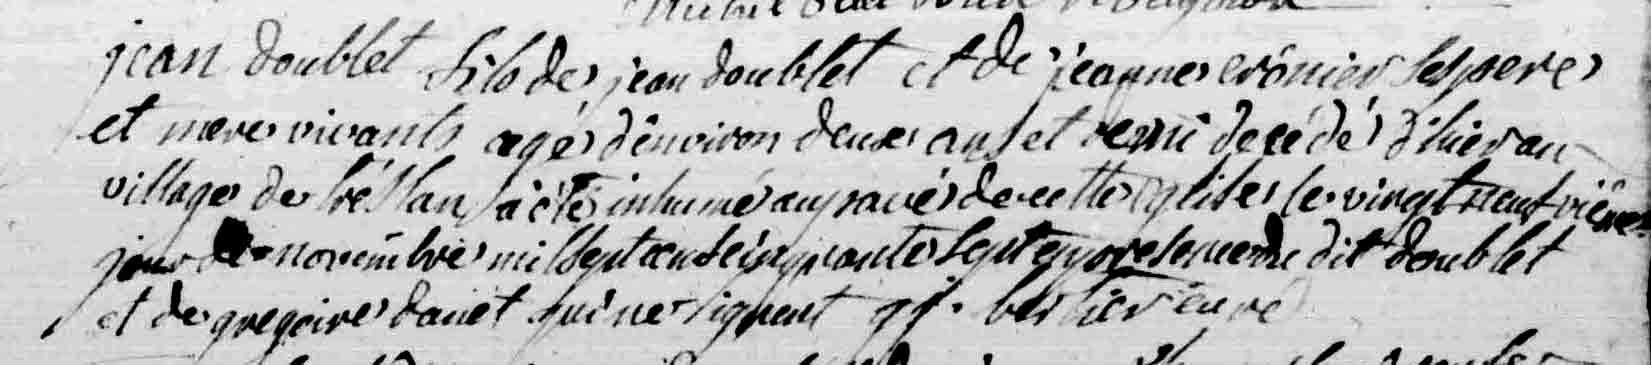 jean doublet fils de jean doublet et de jeanne crônier ses pere
et mere vivants agé d'environ deux ans et demi decédé d'hier au
village de a été inhumé au pavé de cette eglise le vingt neufvième
jour de novembre mil sept cent cinquante sept en presence du dit doublet
et de gregoire danet qui ne signent curé